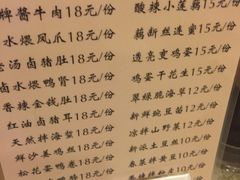 牌酱牛肉18元/份
水煨凤爪18元/份
老汤卤猪肚18元/份
卤水煨鸭肾18元/份
香辣金钱肚18元/份
红油卤猪耳18元/份
天然拌海蜇18元/份
鲜沙姜鸡丝18元/份
松花蛋鸭卷18元/份
酸辣小莲藕15元/份
藕断丝连蜜15元/份
透亮变鸡蛋15元/份
鸡蛋干花生15元/份
翠绿脆海草12元/份
新鲜豌豆苗12元/份
凉拌山野菜12元/份
新派土豆丝10元/份
春菜拌黄豆10元/份